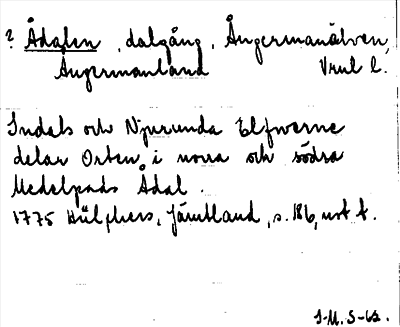 ? Ådalen, dalgång, Ångermanälven,
Ångermanland
Indals och Njurunda Elfwerne
delar Orten i norra och södra
Medelpads Ådal.
1775 Hülphers, Jämtland, s. 186, not t.
J-M. S-63.